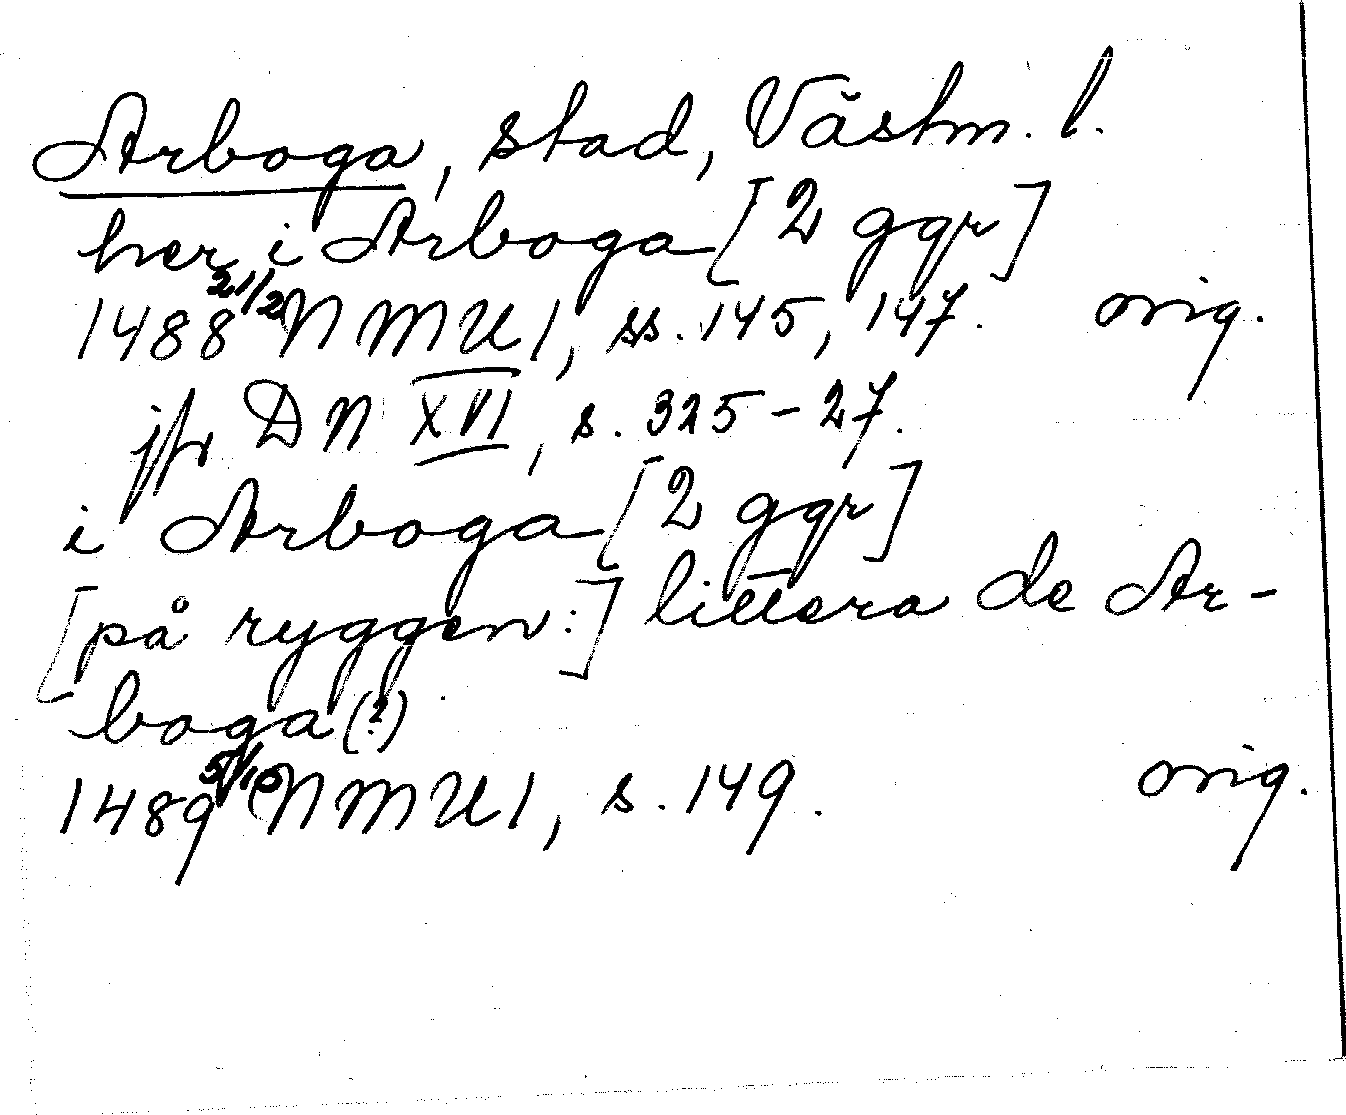 Arboga, stad, Västm. l.
her i Arboga [2 ggr]
1488 21/2 NMU 1, ss. 145, 147. orig.
jfr DN XVI, s. 325-27.
i Arboga [2 ggr]
[på ryggen:] littera de Ar-
boga (?)
1489 5/10 NMU 1, s. 149. orig.